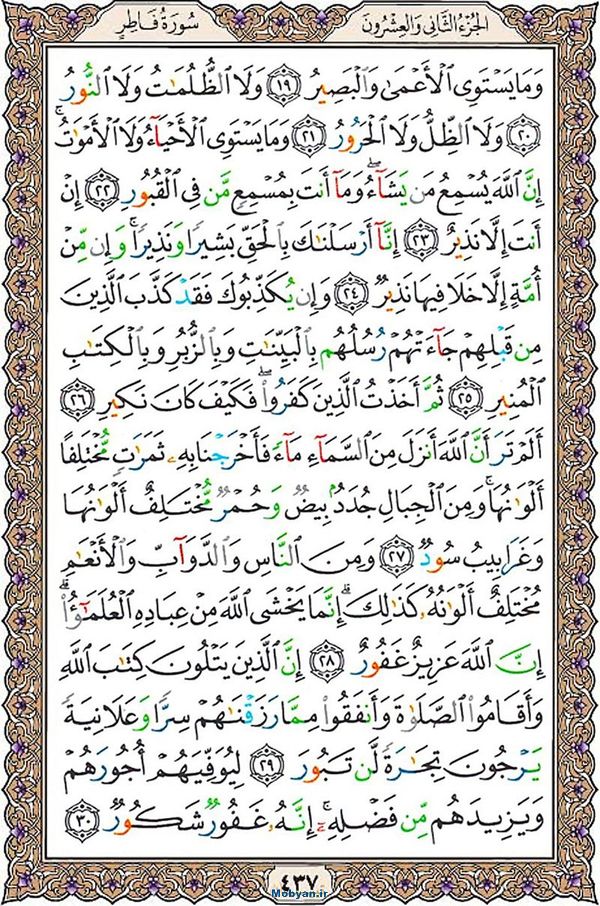 الجزء الثانی والعشرون
سورة فاطر
وَمَا يَسْتَوِى ٱلْأَعْمَىٰ وَٱلْبَصِيرُ ﴿١٩﴾ وَلَا ٱلظُّلُمَٰتُ وَلَا ٱلنُّورُ
﴿٢٠﴾ وَلَا ٱلظِّلُّ وَلَا ٱلْحَرُورُ ﴿٢١﴾ وَمَا يَسْتَوِى ٱلْأَحْيَآءُ وَلَا ٱلْأَمْوَٰتُ ۚ
إِنَّ ٱللَّهَ يُسْمِعُ مَن يَشَآءُ ۖ وَمَآ أَنتَ بِمُسْمِعٍ مَّن فِى ٱلْقُبُورِ ﴿٢٢﴾ إِنْ
أَنتَ إِلَّا نَذِيرٌ ﴿٢٣﴾ إِنَّآ أَرْسَلْنَٰكَ بِٱلْحَقِّ بَشِيرًا وَنَذِيرًا ۚ وَإِن مِّنْ
أُمَّةٍ إِلَّا خَلَا فِيهَا نَذِيرٌ ﴿٢٤﴾ وَإِن يُكَذِّبُوكَ فَقَدْ كَذَّبَ ٱلَّذِينَ
مِن قَبْلِهِمْ جَآءَتْهُمْ رُسُلُهُم بِٱلْبَيِّنَٰتِ وَبِٱلزُّبُرِ وَبِٱلْكِتَٰبِ
ٱلْمُنِيرِ ﴿٢٥﴾ ثُمَّ أَخَذْتُ ٱلَّذِينَ كَفَرُوا۟ ۖ فَكَيْفَ كَانَ نَكِيرِ ﴿٢٦﴾
أَلَمْ تَرَ أَنَّ ٱللَّهَ أَنزَلَ مِنَ ٱلسَّمَآءِ مَآءً فَأَخْرَجْنَا بِهِۦ ثَمَرَٰتٍ مُّخْتَلِفًا
أَلْوَٰنُهَا ۚ وَمِنَ ٱلْجِبَالِ جُدَدٌۢ بِيضٌ وَحُمْرٌ مُّخْتَلِفٌ أَلْوَٰنُهَا
وَغَرَابِيبُ سُودٌ ﴿٢٧﴾ وَمِنَ ٱلنَّاسِ وَٱلدَّوَآبِّ وَٱلْأَنْعَٰمِ
مُخْتَلِفٌ أَلْوَٰنُهُۥ كَذَٰلِكَ ۗ إِنَّمَا يَخْشَى ٱللَّهَ مِنْ عِبَادِهِ ٱلْعُلَمَٰٓؤُا۟ ۗ
إِنَّ ٱللَّهَ عَزِيزٌ غَفُورٌ ﴿٢٨﴾ إِنَّ ٱلَّذِينَ يَتْلُونَ كِتَٰبَ ٱللَّهِ
وَأَقَامُوا۟ ٱلصَّلَوٰةَ وَأَنفَقُوا۟ مِمَّا رَزَقْنَٰهُمْ سِرًّا وَعَلَانِيَةً
يَرْجُونَ تِجَٰرَةً لَّن تَبُورَ ﴿٢٩﴾ لِيُوَفِّيَهُمْ أُجُورَهُمْ
وَيَزِيدَهُم مِّن فَضْلِهِۦٓ ۚ إِنَّهُۥ غَفُورٌ شَكُورٌ ﴿٣٠﴾
٤٣٧
Mobyan.ir